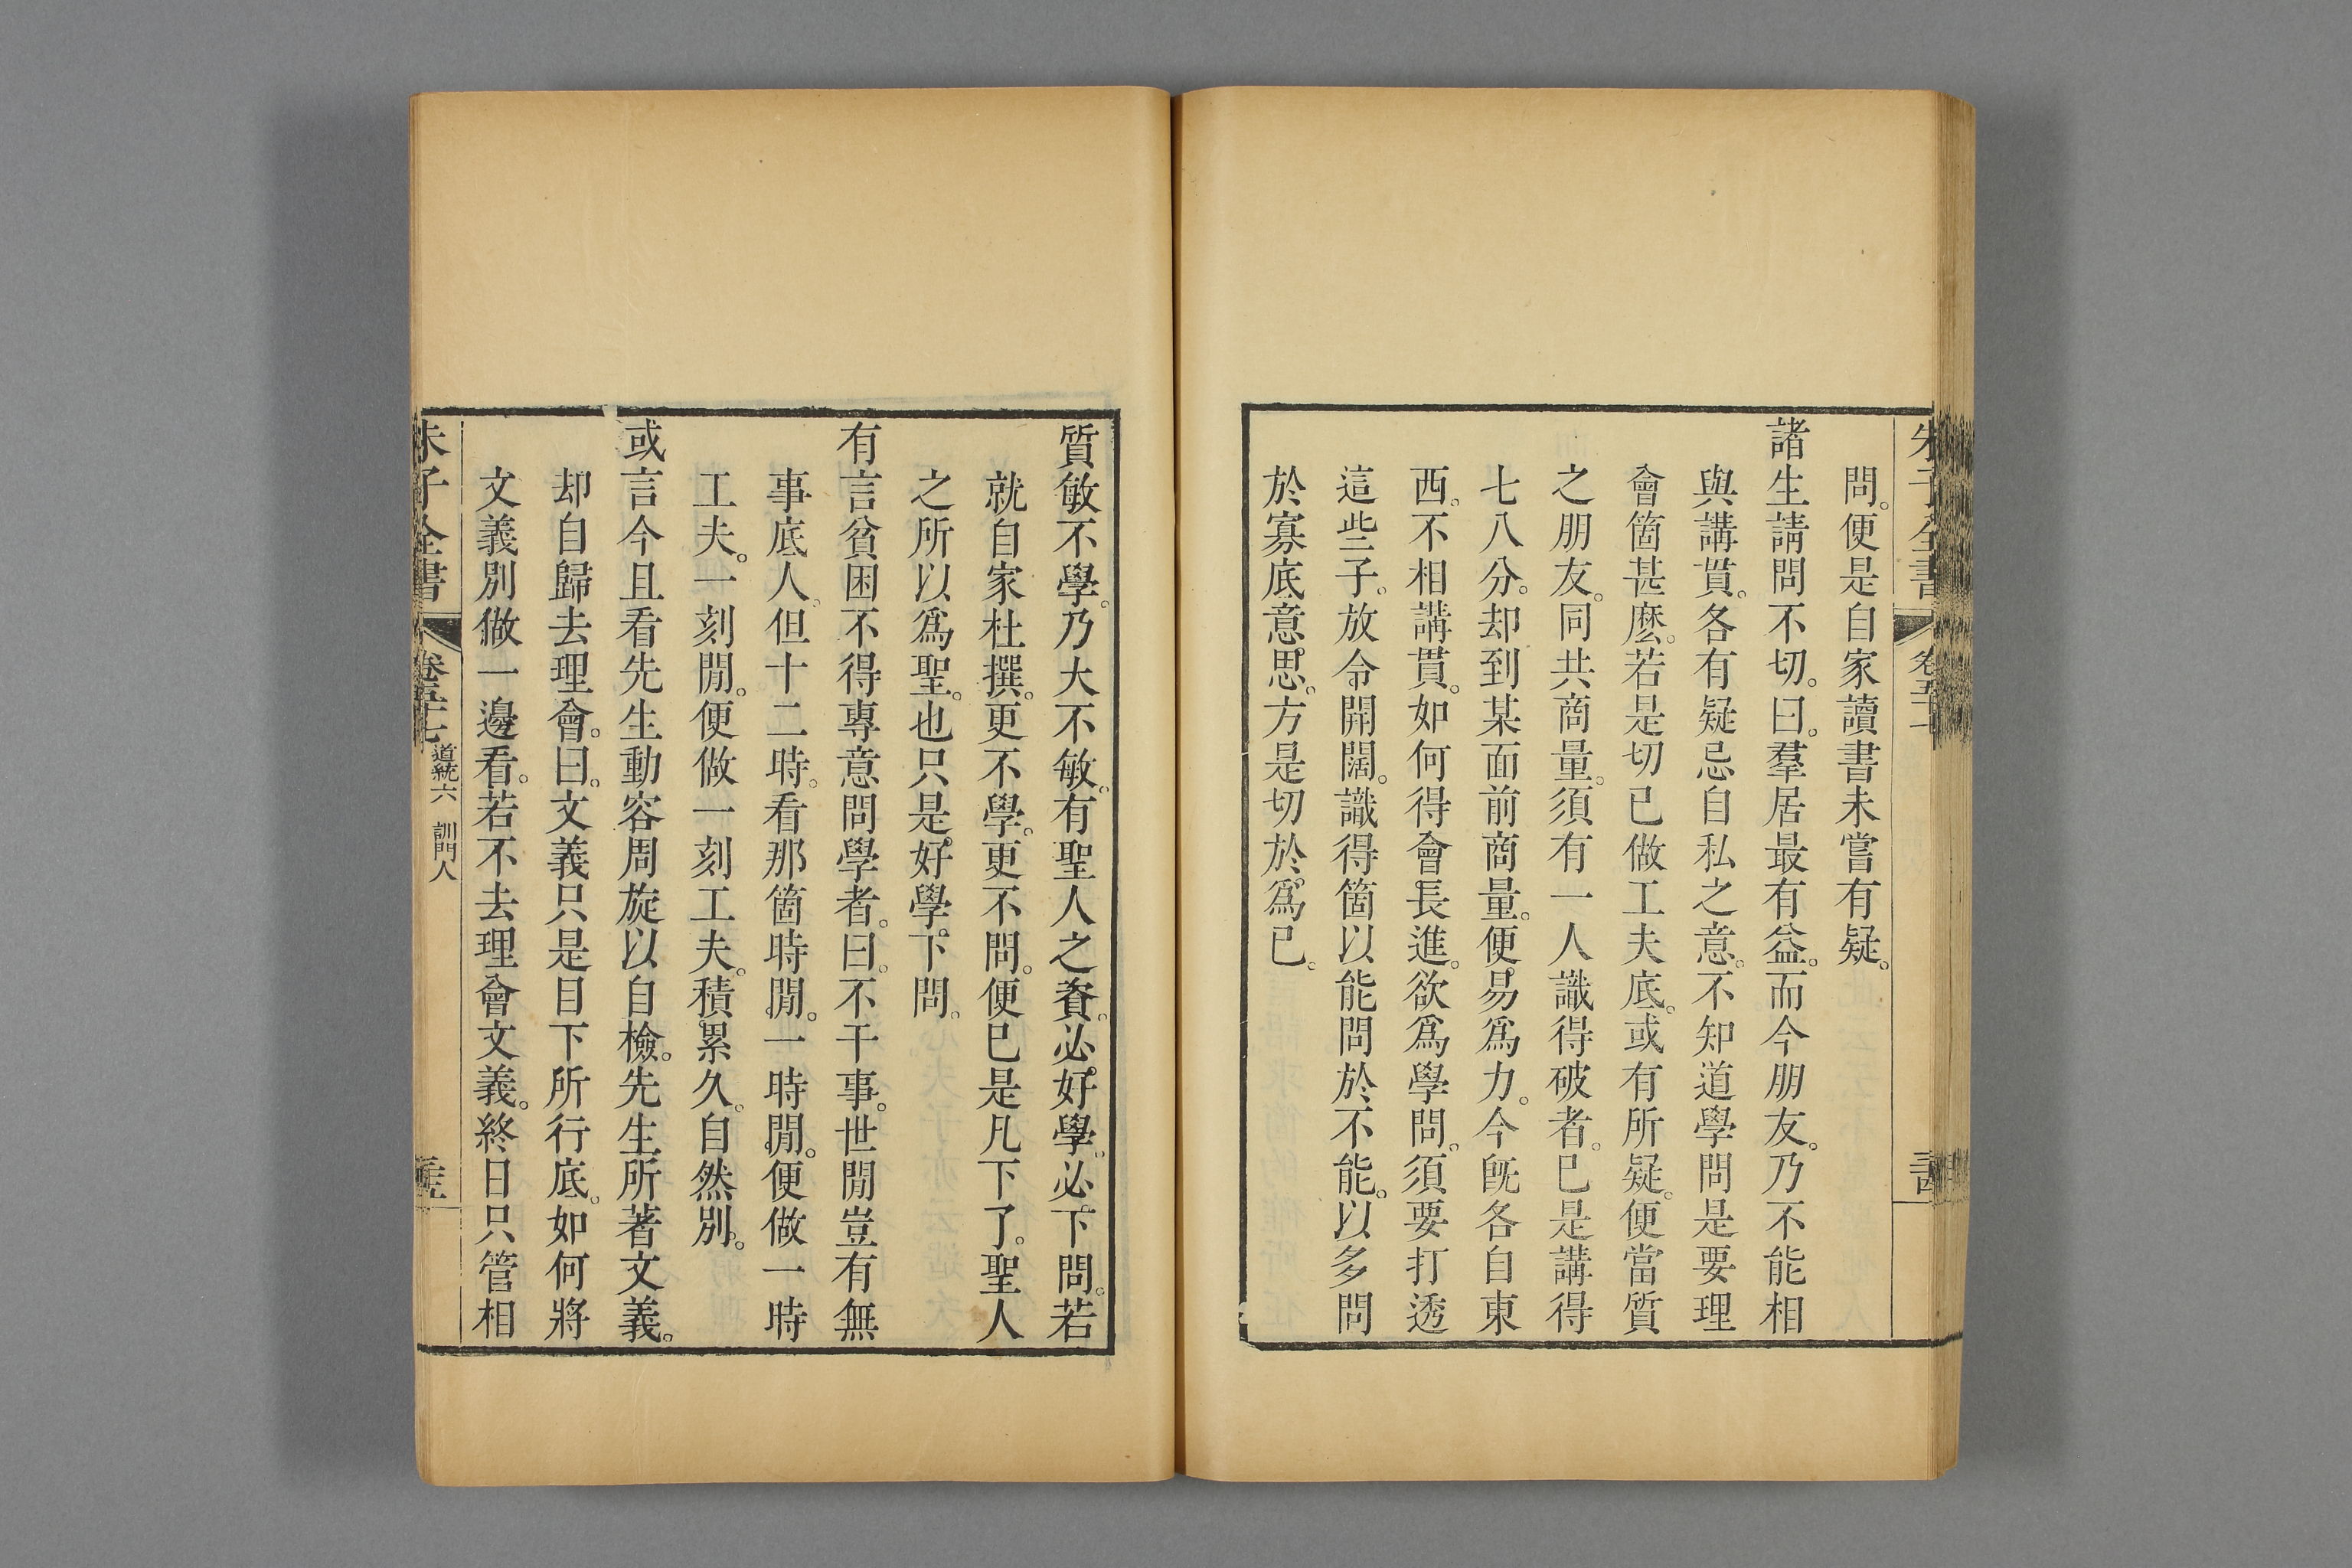 問。便是自家讀書未嘗有疑。
諸生請問不切。曰。羣居最有益。而今朋友。乃不能相
與講貫。各有疑忌自私之意。不知道學問是要理
會箇甚麽。若是切已做工夫底。或有所疑。便當質
之朋友。同共商量。須有一人識得破者。已是講得
七八分。却到某面前商量。便易爲力。今旣各自東
西。不相講貫。如何得會長進。欲爲學問。須要打透
這些子。放令開闊。識得箇以能問於不能。以多問
於寡底意思。方是切於爲已。
質敏不學。乃大不敏。有聖人之資。必好學。必下問。若
就自家杜撰。更不學。更不問。便已是凡下了。聖人
之所以爲聖。也只是好學下問。
有言貧困不得專意問學者。曰。不干事。世閒豈有無
事底人。但十二時。看那箇時閒。一時閒。便做一時
工夫。一刻閒。便做一刻工夫。積累久。自然別。
或言今且看先生動容周旋以自檢。先生所著文義。
却自歸去理會。曰。文義只是目下所行底。如何將
文義別做一邊看。若不去理會文義。終日只管相
朱子全書
卷五十七
道統六 訓門人